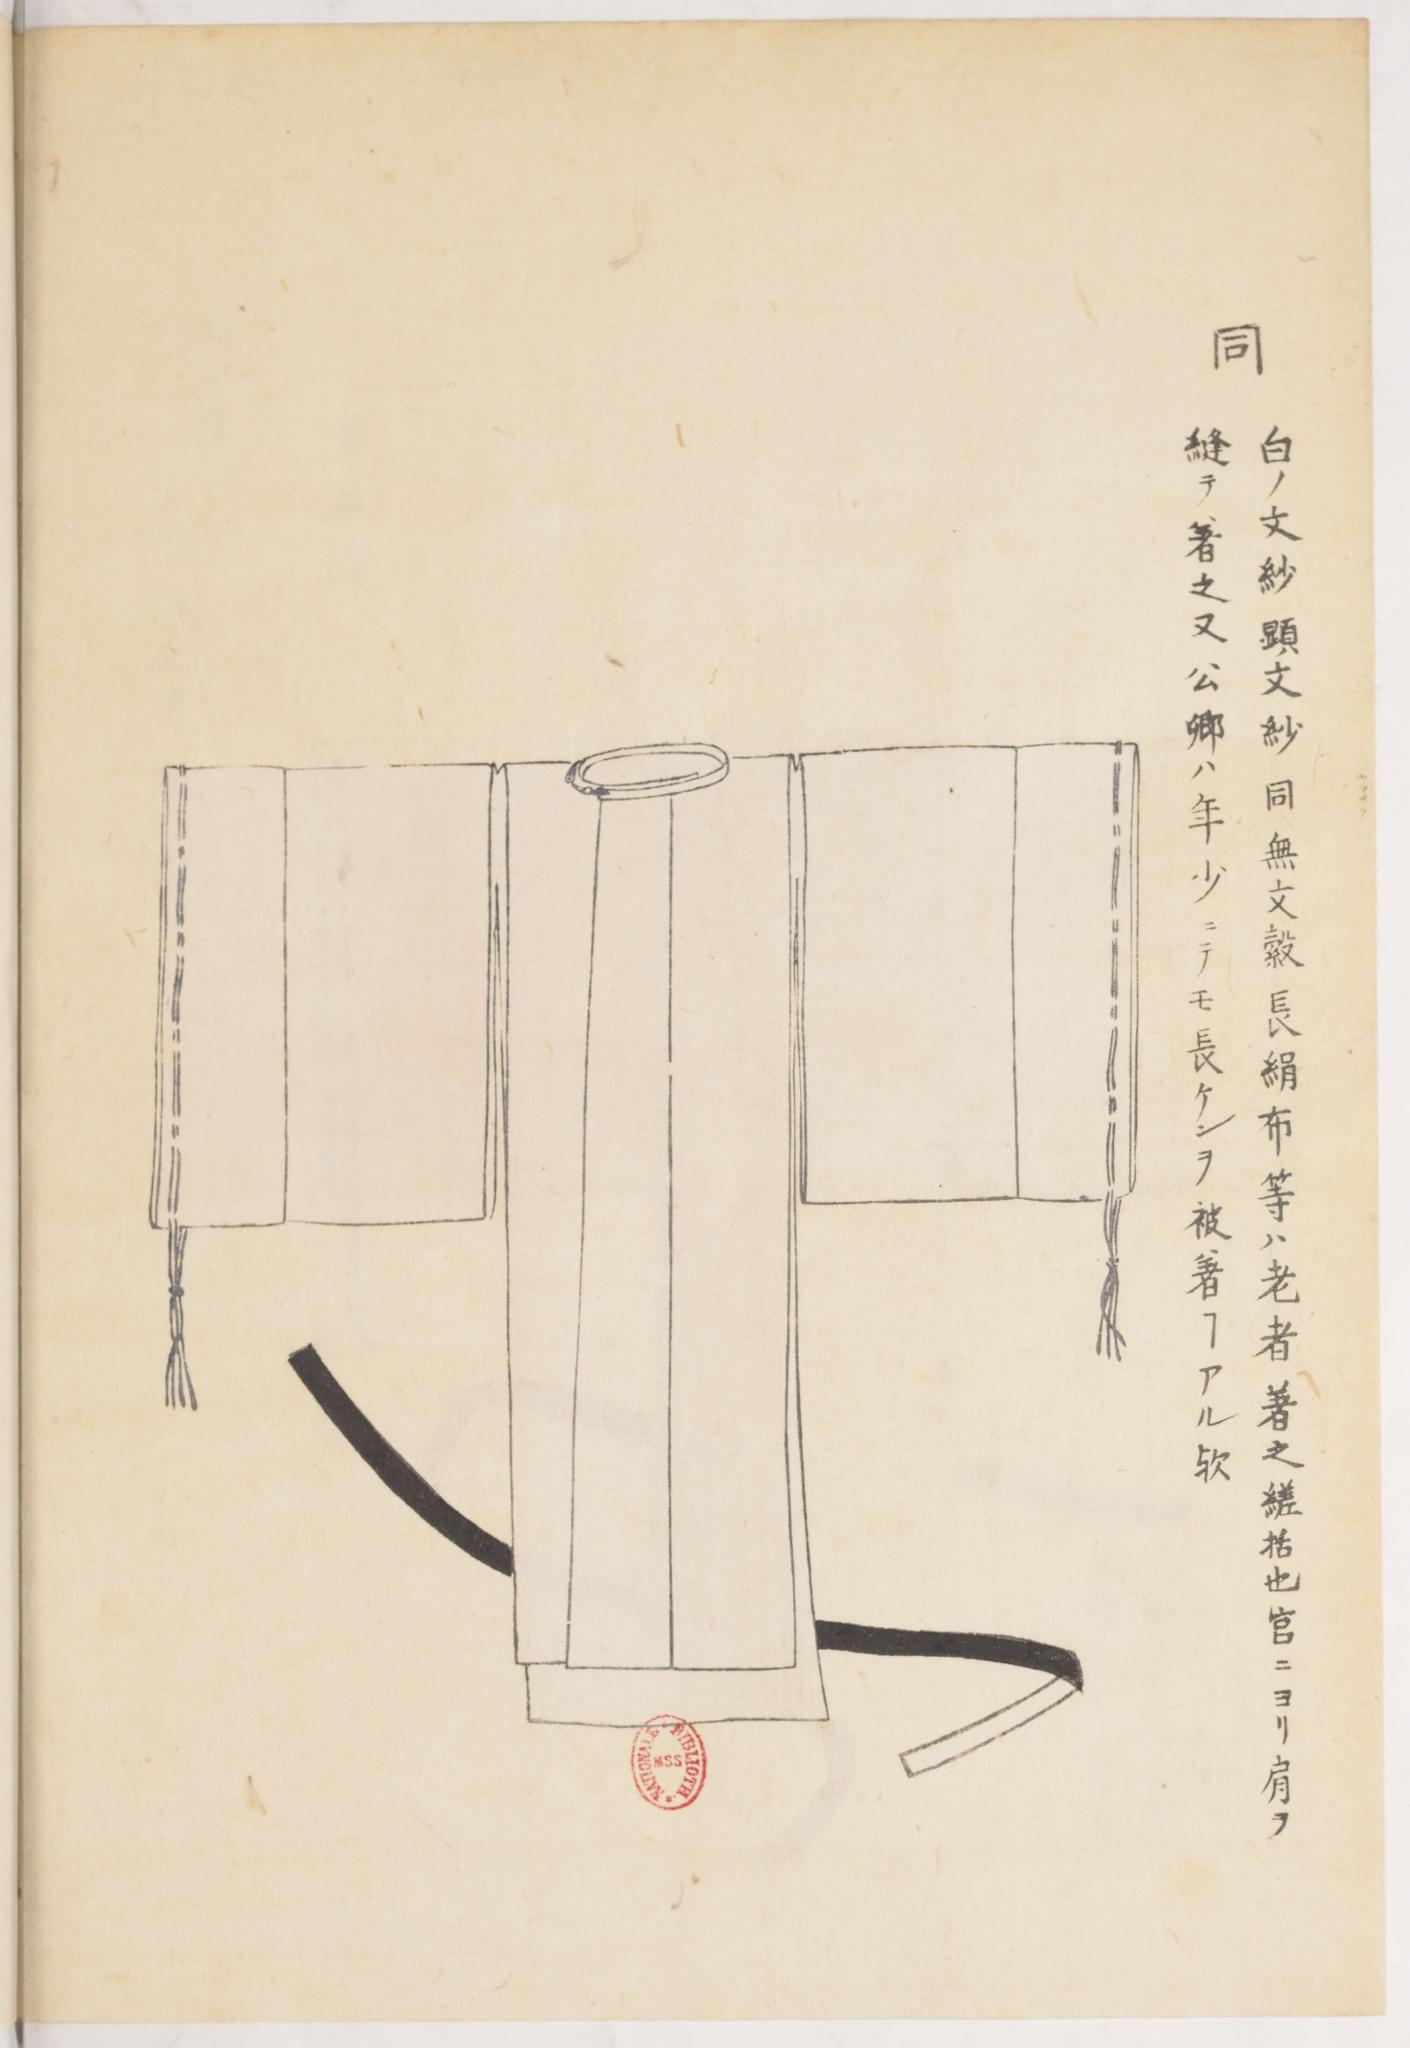 同
白ノ文紗顕文紗同無文縠長絹布等ハ老者著之縒括也官ニヨリ肩ヲ
縫テ著之又公卿ハ年少ニテモ長ケンヲ被著ヿアル欤
BIBLIOTH. NATIONALE
MSS